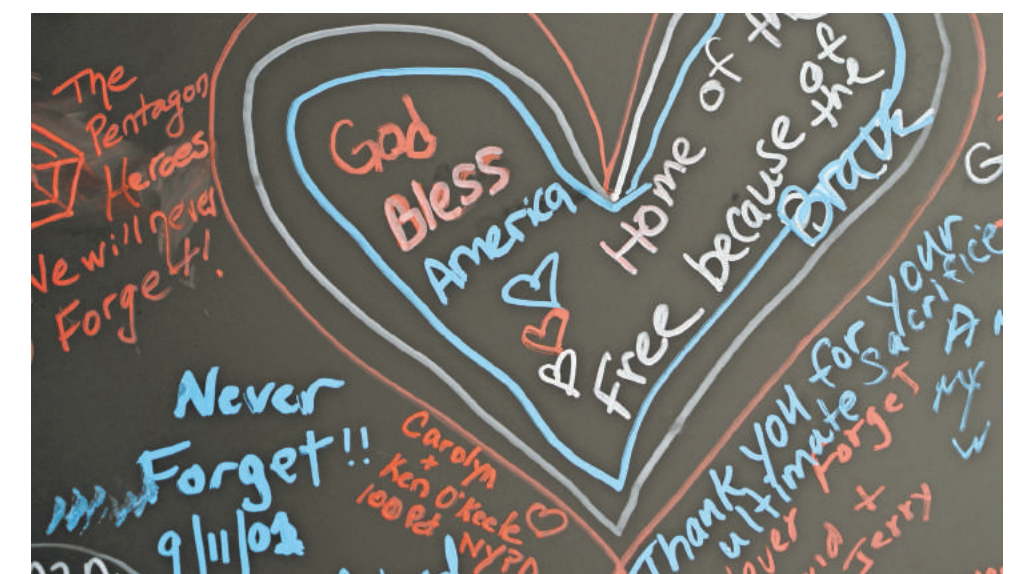 The
Pentagon
Heroes
We will never
Forget!
God
Bless
America
Home of the
Free because of
the
Brave
Never
Forget!!
9/11/01
Carolyn
+
Ken O'Keefe
100Pct
NYPD
Thank you for your
ultimate sacrifice
Forget
+
Jerry